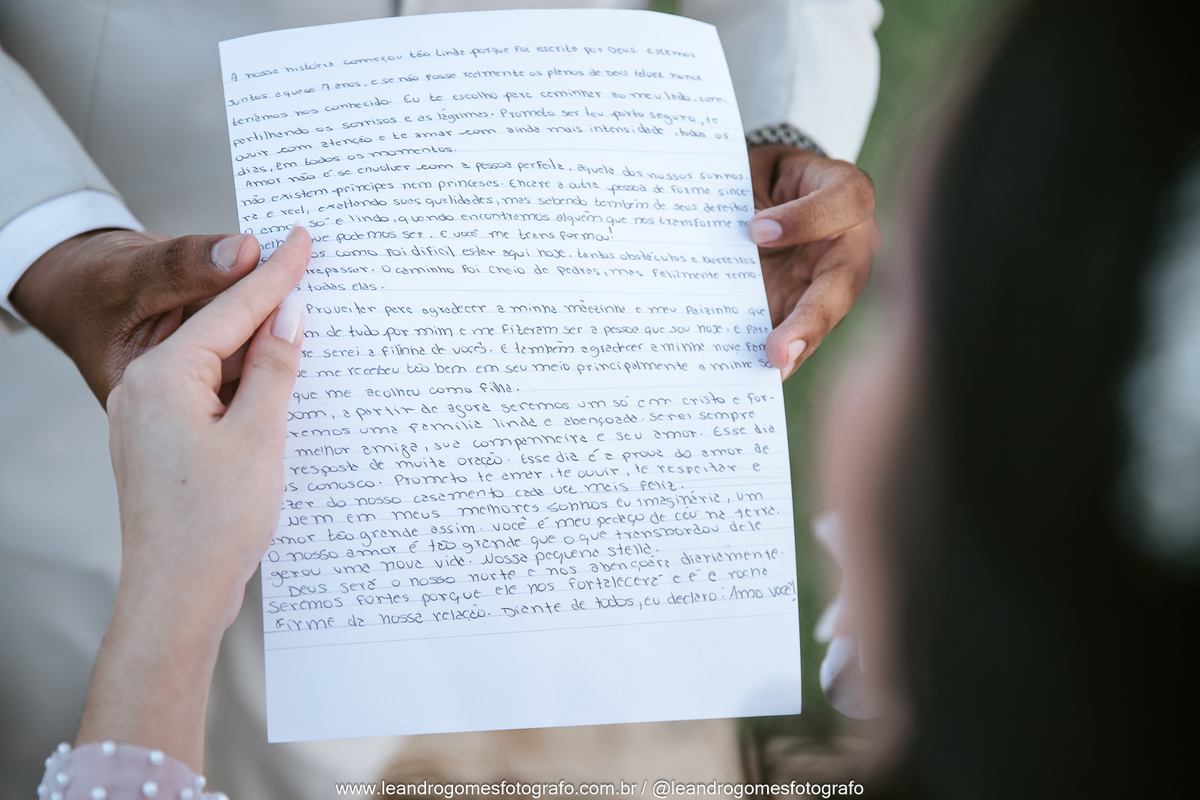 A nossa história começou tão linda porque foi escrita por Deus. Estamos
juntos a quase 7 anos, e se não fosse realmente os planos de Deus talvez nunca
teríamos nos conhecido. Eu te escolho para caminhar ao meu lado, com-
partilhando os sorrisos e as lágrimas. Prometo ser teu porto seguro, te
ouvir com atenção e te amar com ainda mais intensidade todos os
dias, em todos os momentos.
Amor não é se envolver com a pessoa perfeita, aquela dos nossos sonhos.
não existem príncipes nem princesas. Encare a outra pessoa de forma since-
ra e real, exaltando suas qualidades, mas sabendo também de seus defeitos.
só é lindo, quando encontramos alguém que nos transforme no
que podemos ser. E você me transformou!
como foi difícil estar aqui hoje, tantos obstáculos e barreiras
O caminho foi cheio de pedras, mas felizmente remo-
todas elas.
Proveitar para agradecer a minha mãezinha e meu Paizinho que
de tudo por mim e me fizeram ser a pessoa que sou hoje. E para
serei a filinha de vocês. E também agradecer a minha nova fam
me recebeu tão bem em seu meio principalmente a minha so
que me acolheu como filha.
a partir de agora seremos um só em cristo e for-
remos uma família linda e abençoada. Serei sempre
melhor amiga, sua companheira e seu amor. Esse dia
resposta de muita oração. Esse dia é a prova do amor de
conosco. Prometo te amar, te ouvir, te respeitar e
do nosso casamento cada vez mais feliz.
nem em meus melhores sonhos eu imaginária, um
amor tão grande assim. Você é meu pedaço de céu na terra.
O nosso amor é tão grande que o que transbordou dele
gerou uma nova vida. Nossa pequena stella.
Deus será o nosso norte e nos abençoara diariamente.
Seremos fortes porque ele nos fortalecerá e é a rocha
firme da nossa relação. Diante de todos, eu declaro: Amo você!
www.leandrogomesfotografo.com.br / @leandrogomesfotografo